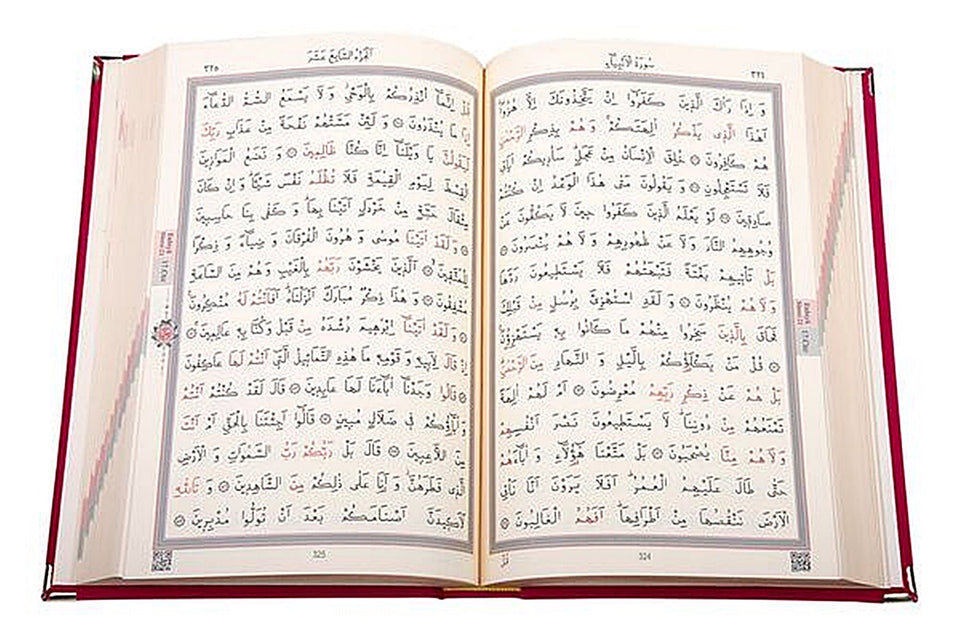 سورة الأنبياء
٣٢٤
و اذا راك الذين كفروا ان يتخذونك الا هزوا
اهذا الذي يذكر الهتكم وهم بذكر الرحمن
هم كافرون ۞ خلق الانسان من عجل ساريكم اياتي
فلا تستعجلون ۞ و يقولون متى هذا الوعد ان كنتم
صادقين ۞ لو يعلم الذين كفروا حين لا يكفون عن
وجوههم النار ولا عن ظهورهم ولا هم ينصرون ۞
بل تاتيهم بغتة فتبهتهم فلا يستطيعون ردها
ولا هم ينظرون ۞ و لقد استهزئ برسل من قبلك
فحاق بالذين سخروا منهم ما كانوا به يستهزؤن
۞ قل من يكلؤكم بالليل و النهار من الرحمن
بل هم عن ذكر ربهم معرضون ۞ ام لهم الهة
تمنعهم من دوننا لا يستطيعون نصر انفسهم
ولا هم منا يصحبون ۞ بل متعنا هؤلاء و اباءهم
حتى طال عليهم العمر افلا يرون انا ناتي
الارض ننقصها من اطرافها افهم الغالبون ۞
324
قل
الجزء السابع عشر
٣٢٥
قل انما انذركم بالوحي و لا يسمع الصم الدعاء
اذا ما ينذرون ۞ و لئن مستهم نفحة من عذاب ربك
ليقولن يا ويلنا انا كنا ظالمين ۞ و نضع الموازين
القسط ليوم القيمة فلا تظلم نفس شيئا و ان كان
مثقال حبة من خردل اتينا بها و كفى بنا حاسبين
۞ و لقد اتينا موسى و هرون الفرقان و ضياء و ذكرا
للمتقين ۞ الذين يخشون ربهم بالغيب وهم من الساعة
مشفقون ۞ و هذا ذكر مبارك انزلناه افانتم له منكرون
۞ و لقد اتينا ابرهيم رشده من قبل وكنا به عالمين ۞
اذ قال لابيه و قومه ما هذه التماثيل التي انتم لها عاكفون
۞ قالوا وجدنا اباءنا لها عابدين ۞ قال لقد كنتم انتم
و اباؤكم في ضلال مبين ۞ قالوا اجئتنا بالحق ام انت
من اللاعبين ۞ قال بل ربكم رب السموات و الارض
الذي فطرهن و انا على ذلكم من الشاهدين ۞ و تالله
لاكيدن اصنامكم بعد ان تولوا مدبرين ۞
325